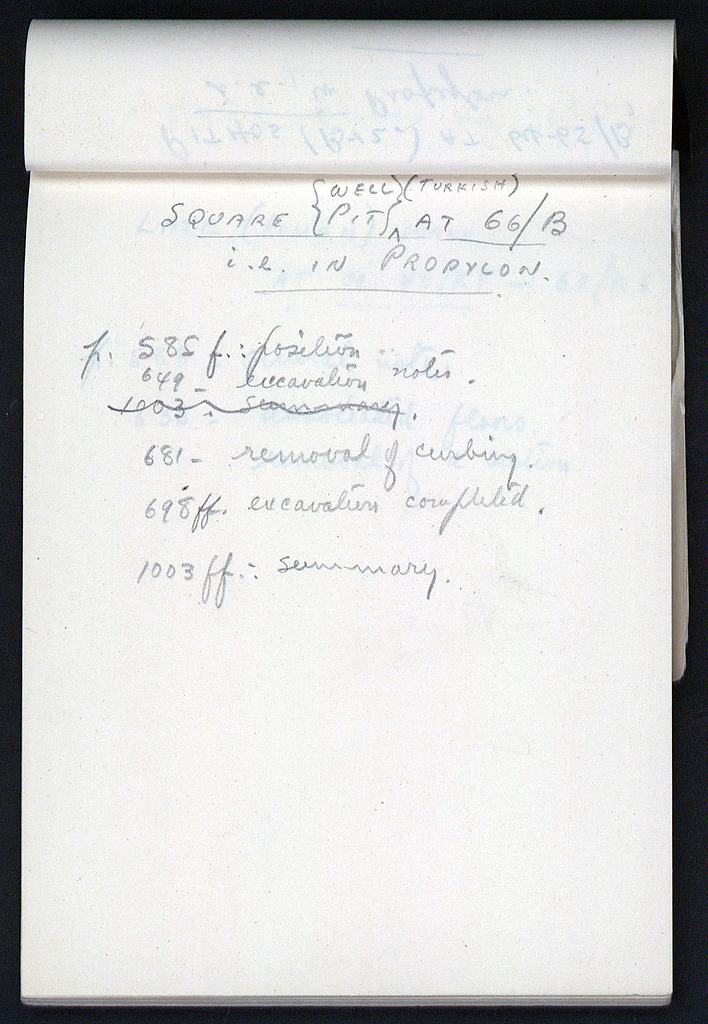 WELL (TURKISH)
SQUARE {PIT} AT 66/B
i.e. IN PROPYLON.
p. 585 f.: position notes.
649 - excavation
1003: summary.
681 - removal of curbing.
698 ff. excavation completed.
1003 ff.: summary.